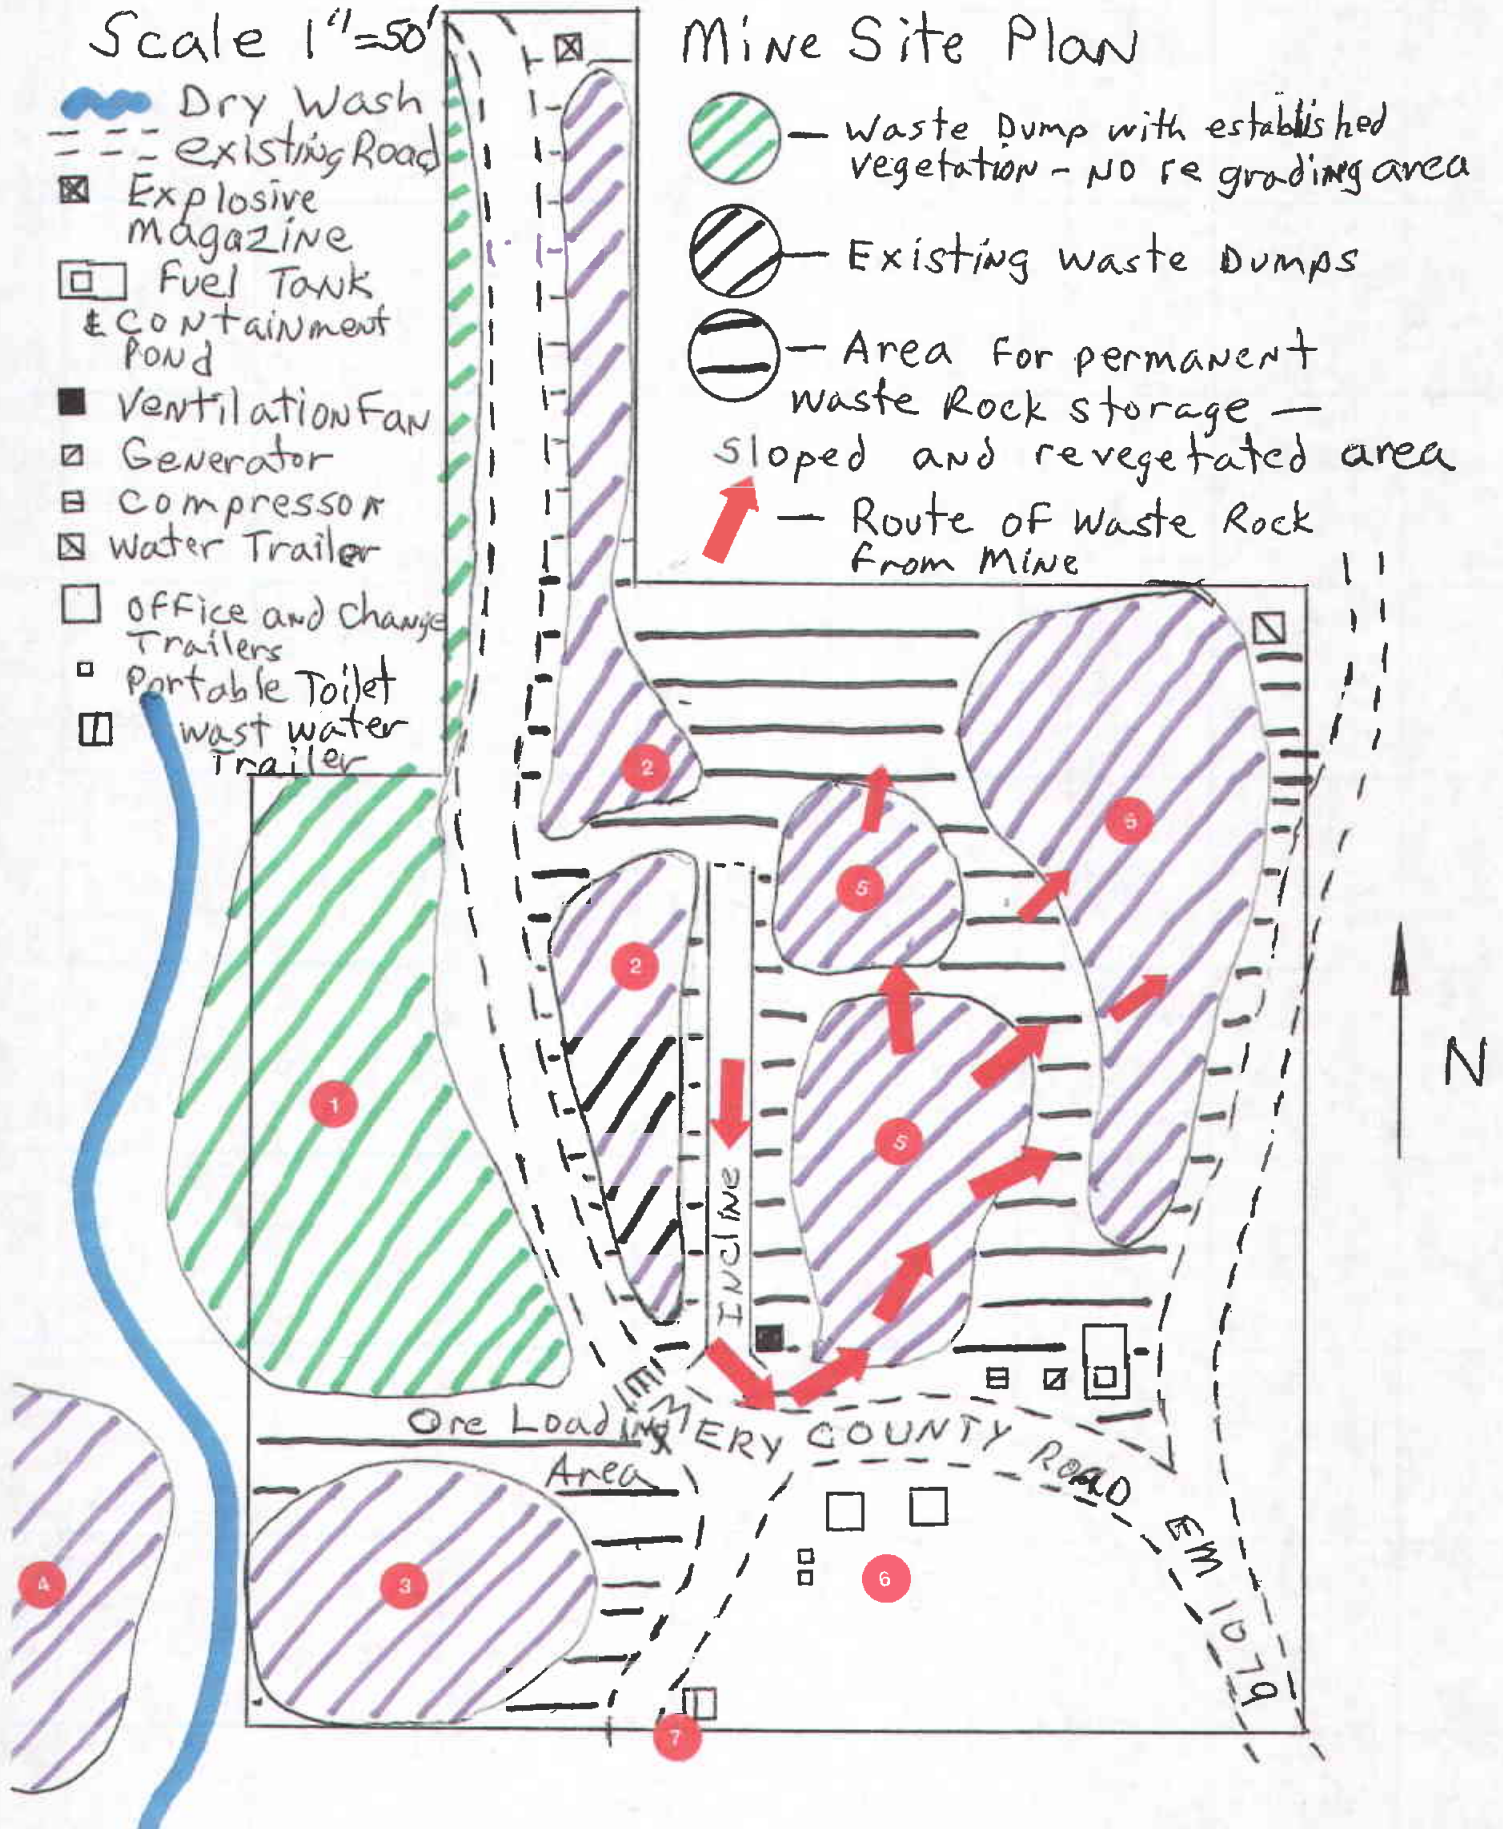 Scale 1"=50'
Mine Site Plan
Dry Wash
existing Road
Explosive
magazine
Fuel Tank
& Containment
Pond
Ventilation Fan
Generator
Compressor
Water Trailer
Office and Change
Trailers
Portable Toilet
Wast water
Trailer
— Waste Dump with established
vegetation - NO re grading area
— Existing Waste Dumps
— Area For permanent
Waste Rock storage —
Sloped and revegetated area
— Route of Waste Rock
from Mine
2
5
6
2
1
5
N
INCLINE
Ore Loading
Area
EMERY COUNTY ROAD EM 1079
4
3
6
7